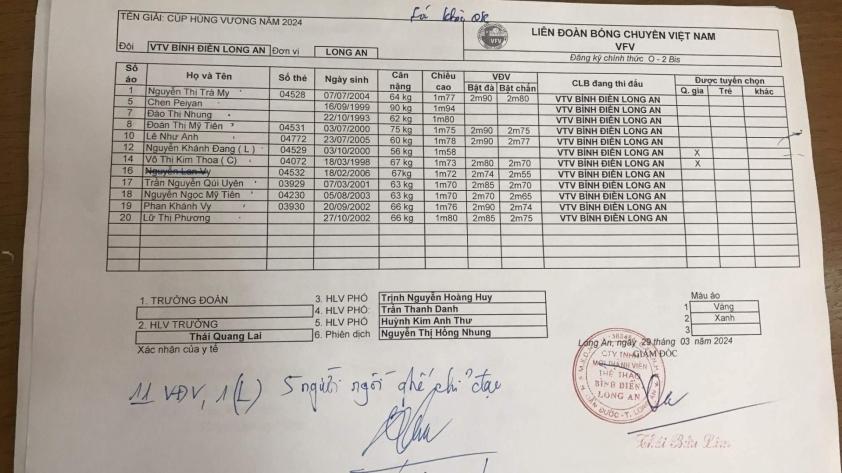 TÊN GIẢI: CÚP HÙNG VƯƠNG NĂM 2024
Đội VTV BÌNH ĐIỀN LONG AN Đơn vị LONG AN
LIÊN ĐOÀN BÓNG CHUYỀN VIỆT NAM
VFV
Đăng ký chính thức O - 2 Bis
Số áo Họ và Tên Số thẻ Ngày sinh Cân nặng Chiều cao VĐV CLB đang thi đấu Được tuyển chọn
Bật đà Bật chắn Q. gia Trẻ khác
1 Nguyễn Thị Trà My 04528 07/07/2004 64 kg 1m77 2m90 2m80 VTV BÌNH ĐIỀN LONG AN
5 Chen Peiyan 16/09/1999 90 kg 1m94 VTV BÌNH ĐIỀN LONG AN
7 Đào Thị Nhung 22/10/1993 62 kg 1m80 VTV BÌNH ĐIỀN LONG AN
8 Đoàn Thị Mỹ Tiên 04531 03/07/2000 75 kg 1m75 2m90 2m75 VTV BÌNH ĐIỀN LONG AN
10 Lê Như Anh 04772 23/07/2005 60 kg 1m78 2m90 2m77 VTV BÌNH ĐIỀN LONG AN
12 Nguyễn Khánh Đang ( L ) 04529 03/10/2000 56 kg 1m58 VTV BÌNH ĐIỀN LONG AN X
14 Võ Thị Kim Thoa ( C ) 04072 18/03/1998 67 kg 1m73 2m80 2m70 VTV BÌNH ĐIỀN LONG AN X
16 Nguyễn Lan Vy 04532 18/02/2006 67kg 1m72 2m74 2m55 VTV BÌNH ĐIỀN LONG AN
17 Trần Nguyễn Qúi Uyên 03929 07/03/2001 63 kg 1m70 2m85 2m70 VTV BÌNH ĐIỀN LONG AN
18 Nguyễn Ngọc Mỹ Tiên 04230 05/08/2003 63 kg 1m70 2m70 2m65 VTV BÌNH ĐIỀN LONG AN
19 Phan Khánh Vy 03930 20/09/2002 66 kg 1m76 2m90 2m74 VTV BÌNH ĐIỀN LONG AN
20 Lữ Thị Phương 27/10/2002 66 kg 1m80 2m85 2m75 VTV BÌNH ĐIỀN LONG AN
1. TRƯỞNG ĐOÀN
2. HLV TRƯỞNG
Thái Quang Lai
Xác nhận của y tế
3. HLV PHÓ Trịnh Nguyễn Hoàng Huy
4. HLV PHÓ: Trần Thanh Danh
5. HLV PHÓ Huỳnh Kim Anh Thư
6. Phiên dịch Nguyễn Thị Hồng Nhung
Màu áo
1 Vàng
2 Xanh
3
Long An, ngày 29 tháng 03 năm 2024
GIÁM ĐỐC
CTY TNHH
MỘT THÀNH VIÊN
THỂ THAO
BÌNH ĐIỀN
LONG AN
11 VĐV, 1 (L) 5 người ngồi ghế chỉ đạo